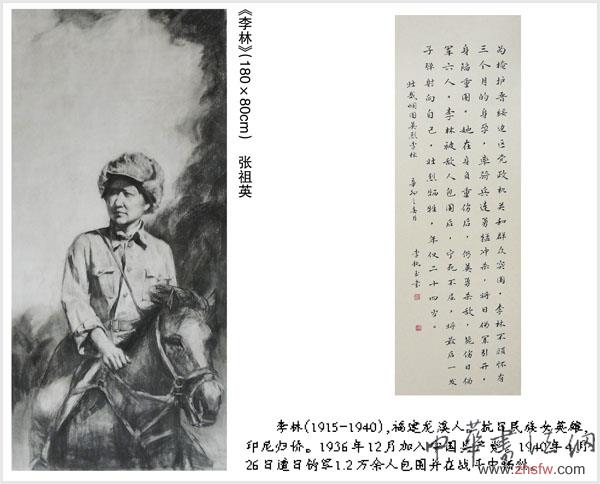 《李林》(180×80cm) 张祖英
为掩护晋绥边区党政机关和群众突围,李林不顾怀有
三个月的身孕,率骑兵连勇猛冲杀,将日伪军引开,
身陷重围。她在身负重伤后,仍英勇杀敌,毙伤日伪
军六人。李林被敌人包围后,宁死不屈,将最后一发
子弹射向自己,壮烈牺牲,年仅二十四岁。
李林(1915-1940),福建龙溪人,抗日民族女英雄,
印尼归侨。1936年12月加入中国共产党。1940年4月
26日遭日伪军1.2万余人包围并在战斗中牺牲。
中华书画网
www.zhsfw.com